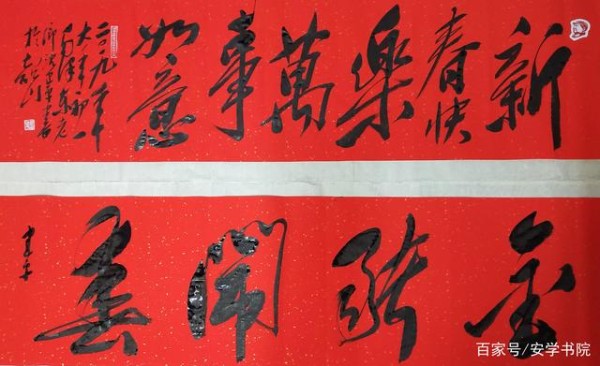 新春快樂萬事如意
二〇一九年
大年初一
金豬鬧春
百家号/安学书院